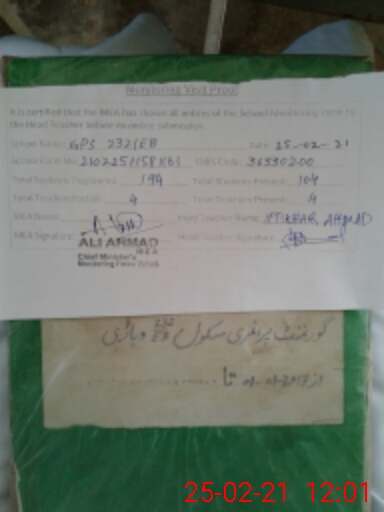 Monitoring Visit Proof
It is certified that the MEA has shown all entries of the School Monitoring Form to
the Head Teacher before its online submission.
School Name: GPS 232/EB Date: 25-02-21
School Form No: EMIS Code: 36330200
Total Students Registered: 194 Total Students Present: 104
Total Teachers Posted: 4 Total Teachers Present: 4
MEA Name: Head Teacher Name: IFTIKHAR AHMAD
MEA Signature: Head Teacher Signature:
ALI AHMAD
M.E.A
Chief Minister's
Monitoring Force
گورنمنٹ پرائمری سکول 232 EB وہاڑی
از 01-01-2017 تا
25-02-21 12:01